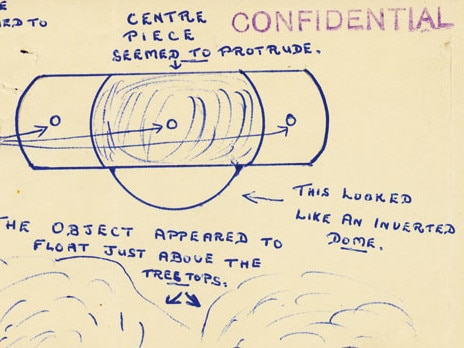 RED TO
CENTRE
PIECE
SEEMED TO PROTRUDE.
CONFIDENTIAL
THIS LOOKED
LIKE AN INVERTED
DOME.
THE OBJECT APPEARED TO
FLOAT JUST ABOVE THE
TREETOPS.